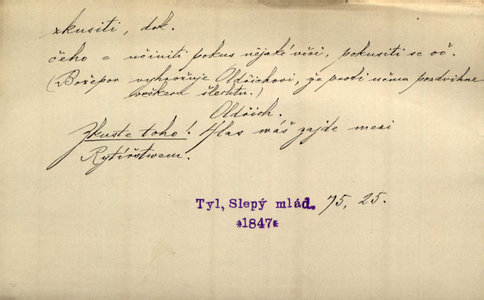 zkusiti, dok.
čeho = učiniti pokus nějaké věci, pokusiti se oč.
(Božepor vyhrožuje Oldřichovi, že proti němu pozdvihne
veškeru šlechtu.)
Oldřich.
Zkuste toho! Hlas váš zajde mezi
Rytířstwem.
Tyl, Slepý mlád. 75, 25.
*1847*